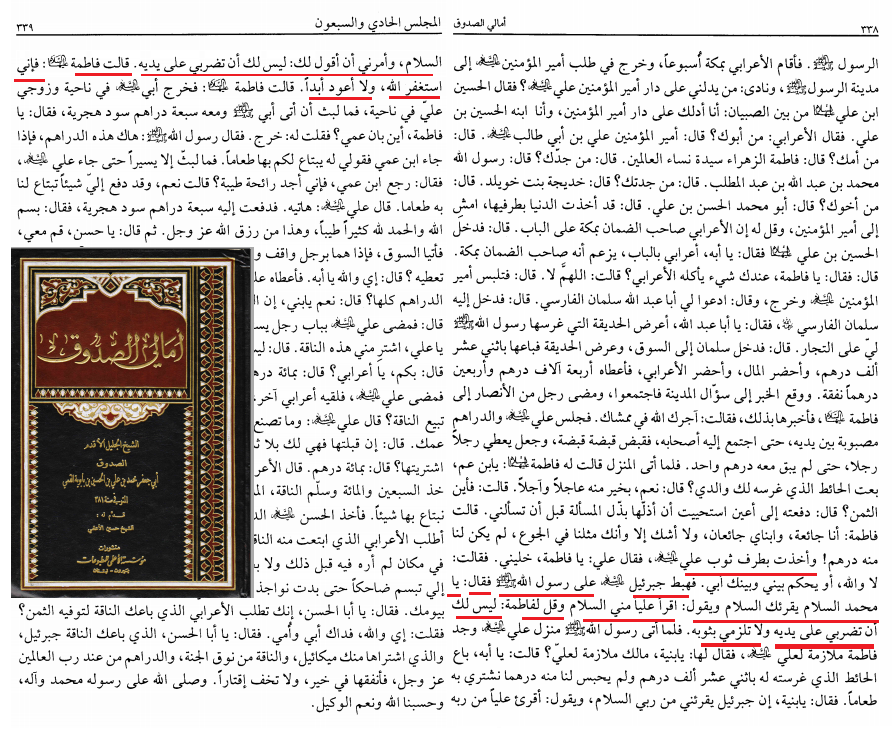 أمالي الصدوق
٣٣٨
الرسول ﷺ. فأقام الأعرابي بمكة أسبوعاً، وخرج في طلب أمير المؤمنين عليه السلام إلى
مدينة الرسول ﷺ، ونادى: من يدلني على دار أمير المؤمنين علي عليه السلام؟ فقال الحسين
ابن علي عليهما السلام من بين الصبيان: أنا أدلك على دار أمير المؤمنين، وأنا ابنه الحسين بن
علي. فقال الأعرابي: من أبوك؟ قال: أمير المؤمنين علي بن أبي طالب عليه السلام. قال:
من أمك؟ قال: فاطمة الزهراء سيدة نساء العالمين. قال: من جدّك؟ قال: رسول الله
محمد بن عبد الله بن عبد المطلب. قال: من جدتك؟ قال: خديجة بنت خويلد. قال:
من أخوك؟ قال: أبو محمد الحسن بن علي. قال: قد أخذت الدنيا بطرفيها، امشِ
إلى أمير المؤمنين، وقل له إن الأعرابي صاحب الضمان بمكة على الباب. قال: فدخل
الحسين بن علي عليهما السلام فقال: يا أبه، أعرابي بالباب، يزعم أنه صاحب الضمان بمكة.
قال: فقال: يا فاطمة، عندك شيء يأكله الأعرابي؟ قالت: اللهمَّ لا. قال: فتلبس أمير
المؤمنين عليه السلام وخرج، وقال: ادعوا لي أبا عبد الله سلمان الفارسي. قال: فدخل إليه
سلمان الفارسي، فقال: يا أبا عبد الله، أعرض الحديقة التي غرسها رسول الله ﷺ
ليّ على التجار. قال: فدخل سلمان إلى السوق، وعرض الحديقة فباعها باثني عشر
ألف درهم، وأحضر المال، وأحضر الأعرابي، فأعطاه أربعة آلاف درهم وأربعين
درهماً نفقة. ووقع الخبر إلى سؤّال المدينة فاجتمعوا، ومضى رجل من الأنصار إلى
فاطمة عليها السلام، فأخبرها بذلك، فقالت: آجرك الله في ممشاك. فجلس علي عليه السلام والدراهم
مصبوبة بين يديه، حتى اجتمع إليه أصحابه، فقبض قبضة قبضة، وجعل يعطي رجلاً
رجلا، حتى لم يبق معه درهم واحد. فلما أتى المنزل قالت له فاطمة عليها السلام: يابن عم،
بعت الحائط الذي غرسه لك والدي؟ قال: نعم، بخير منه عاجلاً وآجلاً. قالت: فأين
الثمن؟ قال: دفعته إلى أعين استحييت أن أذلّها بذّل المسألة قبل أن تسألني. قالت
فاطمة: أنا جائعة، وابناي جائعان، ولا أشك إلا وأنك مثلنا في الجوع، لم يكن لنا
منه درهم! وأخذت بطرف ثوب علي عليه السلام، فقال علي: يا فاطمة، خليني. فقالت:
لا والله، أو يحكم بيني وبينك أبي. فهبط جبرئيل عليه السلام على رسول الله ﷺ فقال: يا
محمد السلام يقرئك السلام ويقول: اقرأ علياً مني السلام وقل لفاطمة: ليس لك
أن تضربي على يديه ولا تلزمي بثوبه. فلما أتى رسول الله ﷺ منزل علي عليه السلام وجد
فاطمة ملازمة لعلي عليه السلام، فقال لها: يابنية، مالك ملازمة لعليّ؟ قالت: يا أبه، باع
الحائط الذي غرسته له باثني عشر ألف درهم ولم يحبس لنا منه درهما نشتري به
طعاماً. فقال: يابنية، إن جبرئيل يقرئني من ربي السلام، ويقول: أقرئ علياً من ربه
المجلس الحادي والسبعون
٣٣٩
السلام، وأمرني أن أقول لك: ليس لك أن تضربي على يديه. قالت فاطمة عليها السلام: فإني
استغفر الله، ولا أعود أبداً. قالت فاطمة عليها السلام: فخرج أبي عليه السلام في ناحية وزوجي
عليّ في ناحية، فما لبث أن أتى أبي ﷺ ومعه سبعة دراهم سود هجرية، فقال: يا
فاطمة، أين بان عمي؟ فقلت له: خرج. فقال رسول الله ﷺ: هاك هذه الدراهم، فإذا
جاء ابن عمي فقولي له يبتاع لكم بها طعاماً. فما لبثّ إلا يسيراً حتى جاء علي عليه السلام،
فقال: رجع ابن عمي، فإني أجد رائحة طيبة؟ قالت نعم، وقد دفع إليّ شيئاً تبتاع لنا
به طعاما. قال علي عليه السلام: هاتيه. فدفعت إليه سبعة دراهم سود هجرية، فقال: بسم
الله والحمد لله كثيراً طيباً، وهذا من رزق الله عز وجل. ثم قال: يا حسن، قم معي،
فأتيا السوق، فإذا هما برجل واقف و
تعطيه؟ قال: إي والله يا أبه. فأعطاه علي
الدراهم كلها؟ قال: نعم يابني، إن ال
قال: فمضى علي عليه السلام بباب رجل يس
يا علي، اشتر مني هذه الناقة. قال: ليـ
قال: بكم، يا أعرابي؟ قال: بمائة دره
فمضى علي عليه السلام، فلقيه أعرابي آخر.
تبيع الناقة؟ قال علي عليه السلام: وما تصنع
عمك. قال: إن قبلتها فهي لك بلا ث
اشتريتها؟ قال: بمائة درهم. قال الأعر
خذ السبعين والمائة وسلّم الناقة، الم
نبتاع بها شيئاً. فأخذ الحسن عليه السلام الد
أطلب الأعرابي الذي ابتعت منه الناقة
في مكان لم أره فيه قبل ذلك ولا ب
إلي تبسم ضاحكاً حتى بدت نواجذ
بيومك. فقال: يا أبا الحسن، إنك تطلب الأعرابي الذي باعك الناقة لتوفيه الثمن؟
فقلت: إي والله، فداك أبي وأمي. فقال: يا أبا الحسن، الذي باعك الناقة جبرئيل،
والذي اشتراها منك ميكائيل، والناقة من نوق الجنة، والدراهم من عند رب العالمين
عز وجل، فأنفقها في خير، ولا تخف إقتاراً. وصلى الله على رسوله محمد وآله،
وحسبنا الله ونعم الوكيل.
أمالي الصدوق
الشيخ الجليل الأقدم
الصدوق
أبي جعفر محمد بن علي بن الحسين بن بابويه القمي
المتوفى سنة ٣٨١
قدم له:
الشيخ حسين الأعلمي
منشورات
مؤسسة الأعلمي للمطبوعات
بيروت - لبنان